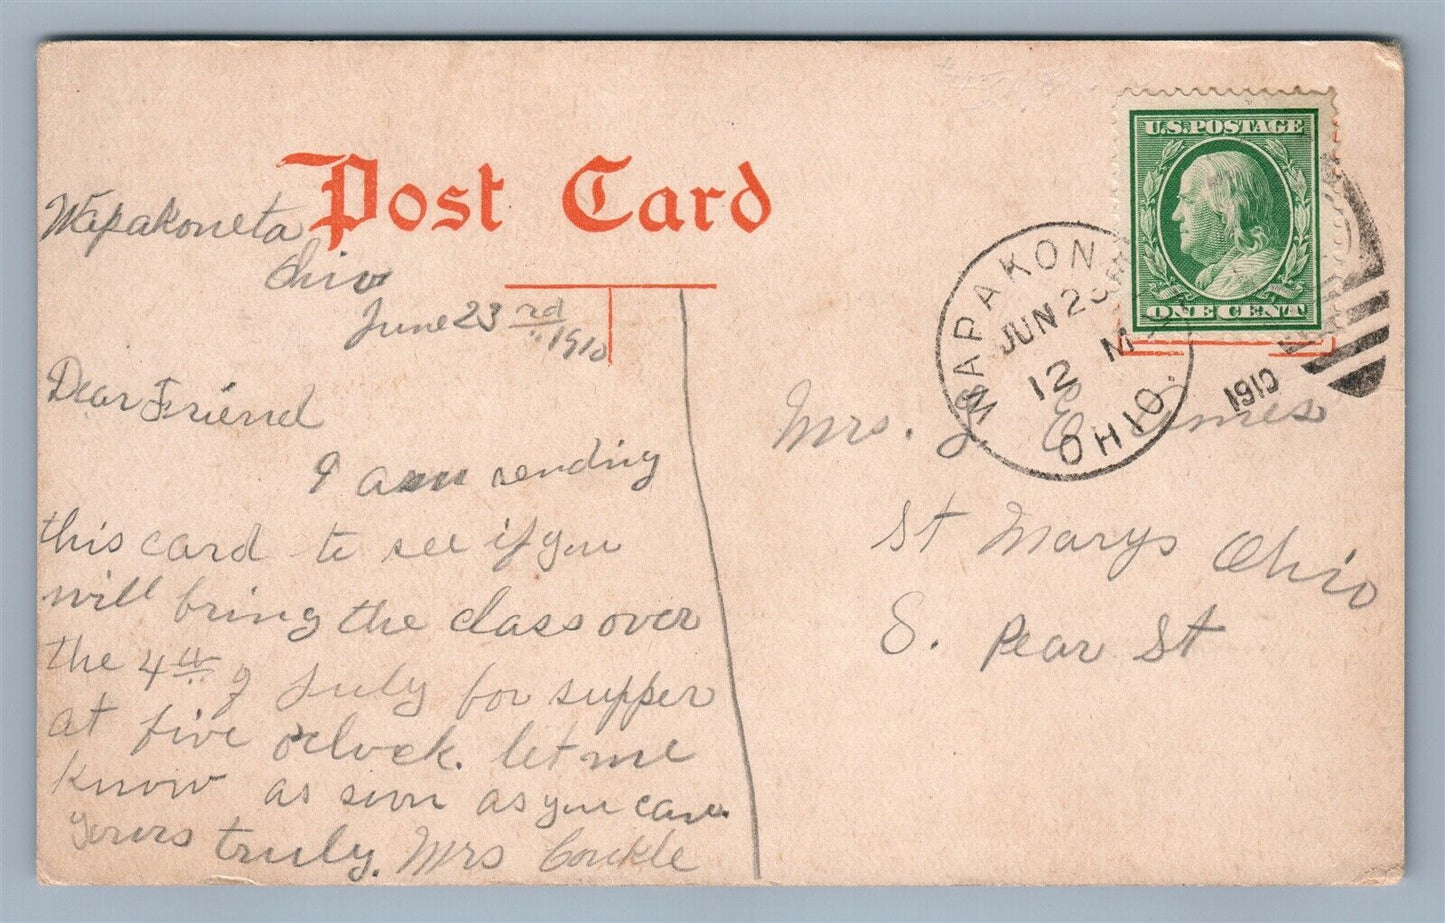 Post Card
Wapakoneta
Ohio
June 23rd 1910
Dear Friend
I am sending
this card to see if you
will bring the class over
the 4th of July for supper
at five o'clock. let me
know as soon as you can.
yours truly. Mrs
U.S. POSTAGE
ONE CENT
WAPAKON
JUN 23
12 M
OHIO.
1910
Mrs. J. E.
St Marys Ohio
S. Pear St